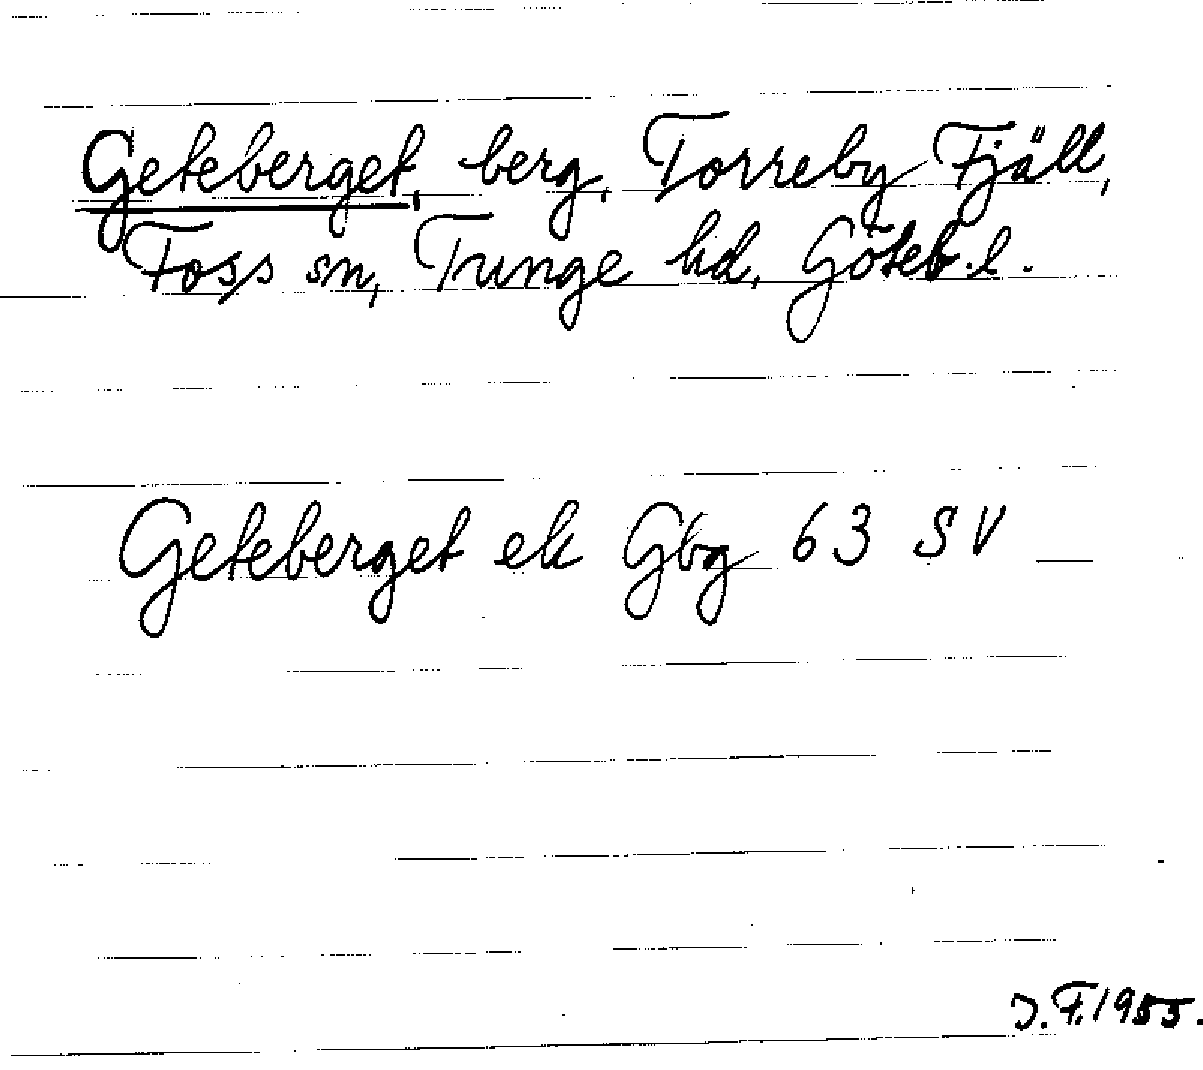 Geteberget, berg, Torreby Fjäll,
Foss sn, Tunge hd, Göteb. l.
Geteberget ek Gbg 63 SV
J.F. 1955.